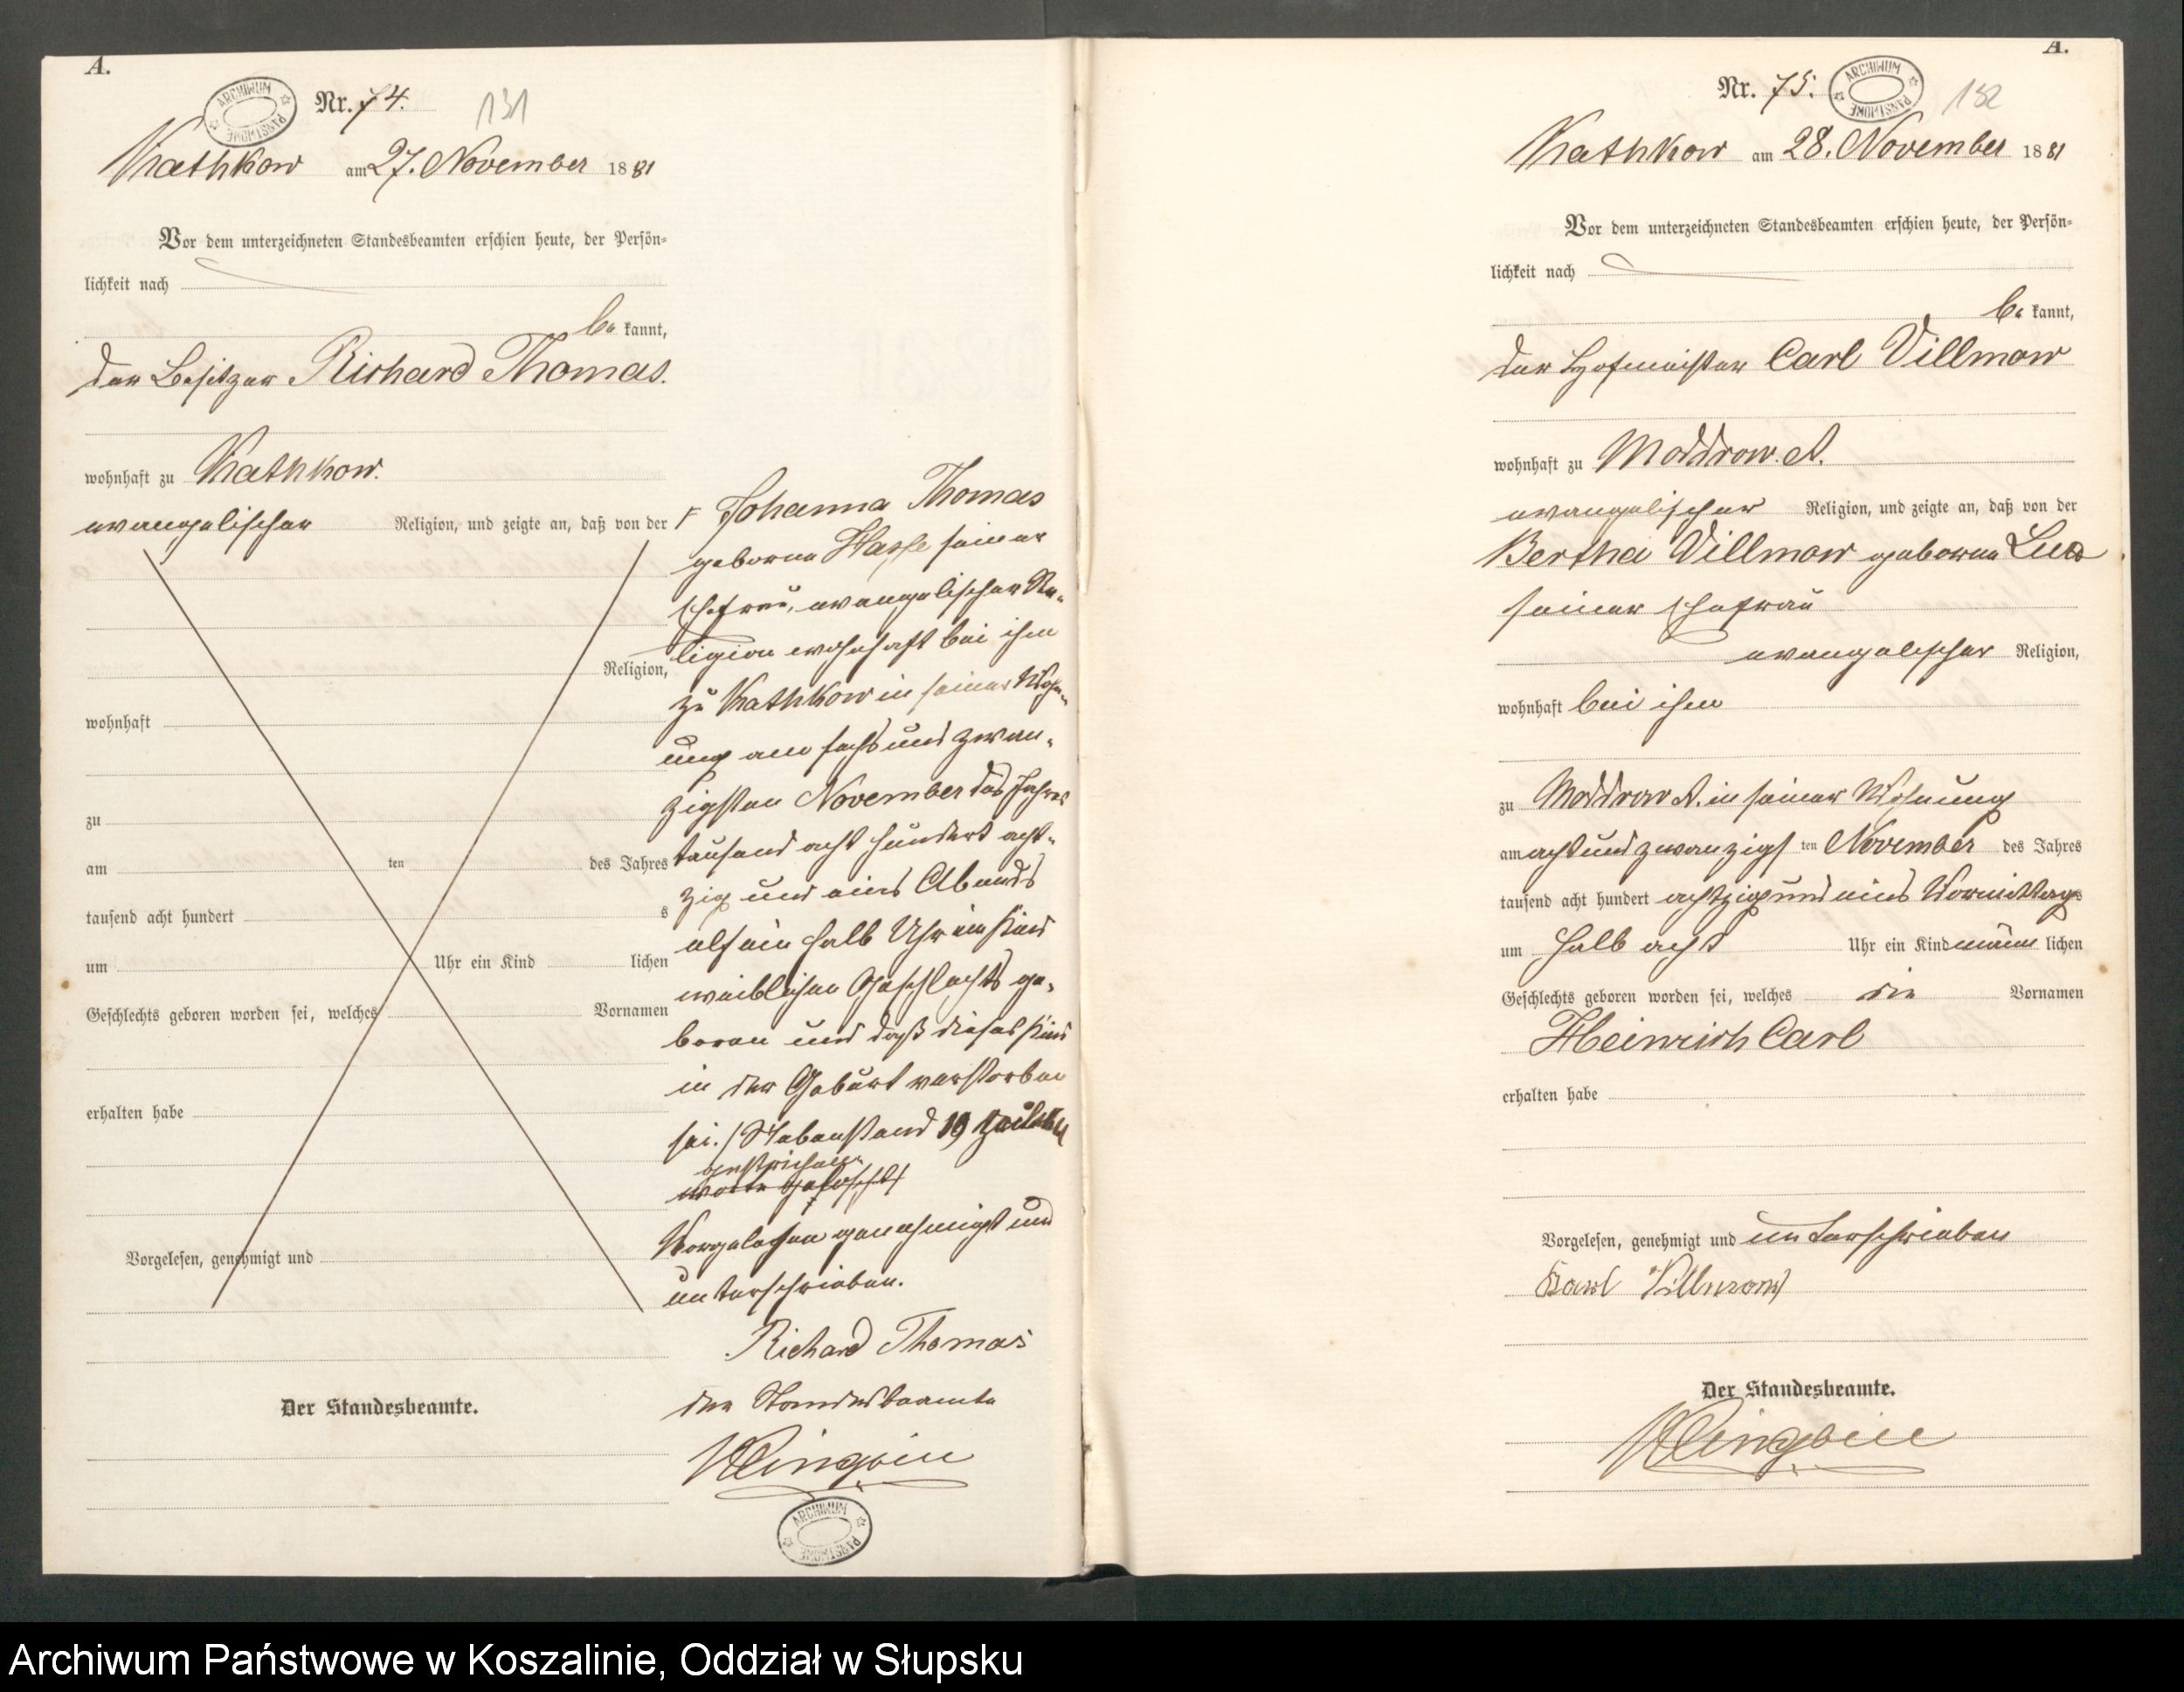 A.
Nr. 74.
131
ARCHIWUM PAŃSTWOWE
Kathkow am 27. November 1881
Vor dem unterzeichneten Standesbeamten erschien heute, der Persön-
lichkeit nach
be kannt,
der Besitzer Richard Thomas.
wohnhaft zu Kathkow.
evangelischer Religion, und zeigte an, daß von der
Religion,
wohnhaft
zu
am ten des Jahres
tausend acht hundert s
um Uhr ein Kind lichen
Geschlechts geboren worden sei, welches Vornamen
erhalten habe
Vorgelesen, genehmigt und
Der Standesbeamte.
Johanna Thomas
geborne Hasse seiner
Ehefrau, evangelischer Re-
ligion wohnhaft bei ihm
zu Kathkow in seiner Wohn-
ung am sechs und zwan-
zigsten November des Jahres
tausend acht hundert acht-
zig und eins Abends
elf ein halb Uhr ein Kind
weiblichen Geschlechts ge-
boren und daß dieses Kind
in der Geburt verstorben
sei. / Nebenstand 19 Zeilen
gestrichen
worte gelöscht /
Vorgelesen genehmigt und
unterschrieben.
Richard Thomas
der Standesbeamte
ARCHIWUM PAŃSTWOWE
A.
Nr. 75.
ARCHIWUM PAŃSTWOWE
132
Kathkow am 28. November 1881
Vor dem unterzeichneten Standesbeamten erschien heute, der Persön-
lichkeit nach
be kannt,
der Hofmeister Carl Villmow
wohnhaft zu Moddrow. A.
evangelischer Religion, und zeigte an, daß von der
Bertha Villmow geborne
seiner Ehefrau
evangelischer Religion,
wohnhaft bei ihm
zu Moddrow A. in seiner Wohnung
am acht und zwanzigs ten November des Jahres
tausend acht hundert achtzig und eins Vormittags
um halb acht Uhr ein Kind männ lichen
Geschlechts geboren worden sei, welches die Vornamen
Heinrich Carl
erhalten habe
Vorgelesen, genehmigt und unterschrieben
Karl Villmow
Der Standesbeamte.
Archiwum Państwowe w Koszalinie, Oddział w Słupsku